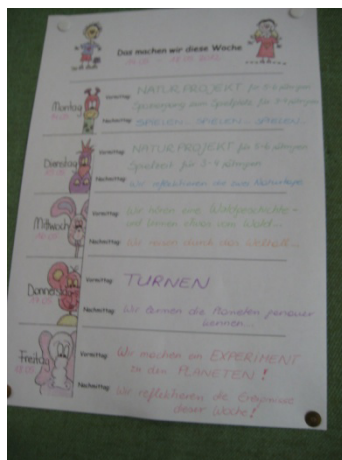 Das machen wir diese Woche
Montag
Vormittag:
NATURPROJEKT für 5-6 jährigen
Spaziergang zum Spielplatz für 3-4 jährigen
Nachmittag:
SPIELEN... SPIELEN... SPIELEN...
Dienstag
Vormittag:
NATURPROJEKT für 5-6 jährigen
Spielzeit für 3-4 jährigen
Nachmittag:
Wir reflektieren
Mittwoch
Vormittag:
Wir hören eine Waldgeschichte -
und lernen etwas vom Wald...
Nachmittag:
Wir reisen durch das Weltall...
Donnerstag
Vormittag:
TURNEN
Nachmittag:
Wir lernen die Planeten genauer
kennen...
Freitag
Vormittag:
Wir machen ein EXPERIMENT
zu den PLANETEN!
Nachmittag:
Wir reflektieren die Ereignisse
dieser Woche!